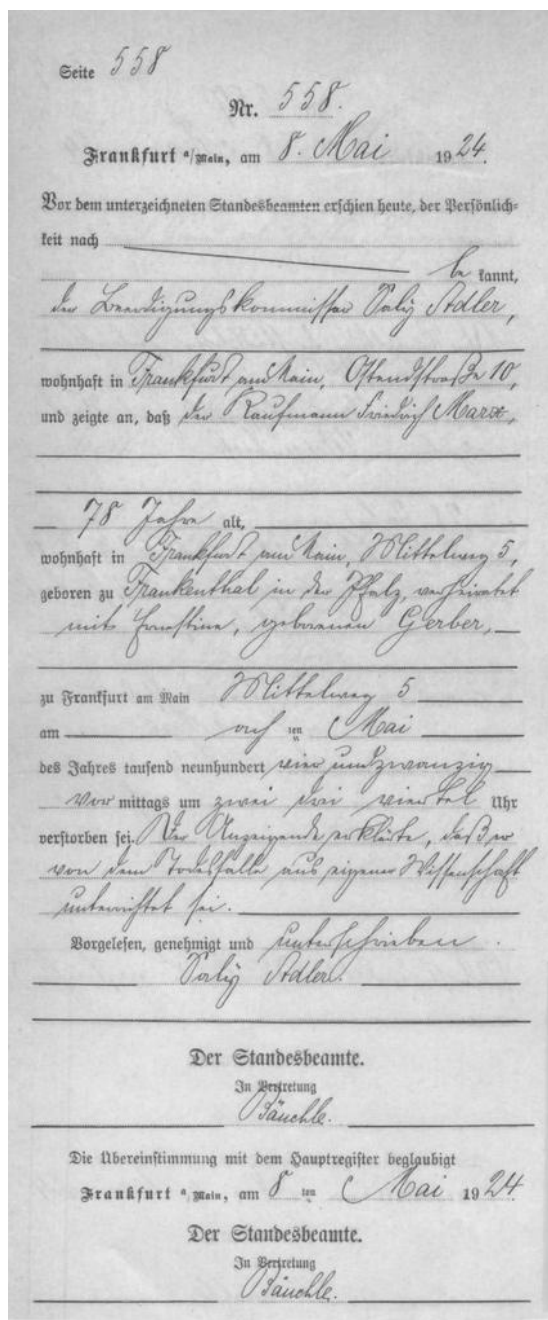 Seite 558
Nr. 558.
Frankfurt a/Main, am 8. Mai 1924.
Vor dem unterzeichneten Standesbeamten erschien heute, der Persönlich=
keit nach
be kannt,
der Beerdigungskommissar Saly Adler,
wohnhaft in Frankfurt am Main, Ostendstraße 10,
und zeigte an, daß der Kaufmann Friedrich Marx,
78 Jahre alt,
wohnhaft in Frankfurt am Main, Mittelweg 5,
geboren zu Frankenthal in der Pfalz, verheiratet
mit Ernestine, geborenen Gerber,
zu Frankfurt am Main Mittelweg 5
am acht ten Mai
des Jahres tausend neunhundert vier und zwanzig
Vor mittags um zwei drei viertel Uhr
verstorben sei. Der Anzeigende erklärte, daß er
von dem Todesfalle aus eigener Wissenschaft
unterrichtet sei.
Vorgelesen, genehmigt und unterschrieben.
Saly Adler.
Der Standesbeamte.
In Vertretung
Bäuchle.
Die Übereinstimmung mit dem Hauptregister beglaubigt
Frankfurt a/Main, am 8 ten Mai 1924.
Der Standesbeamte.
In Vertretung
Bäuchle.